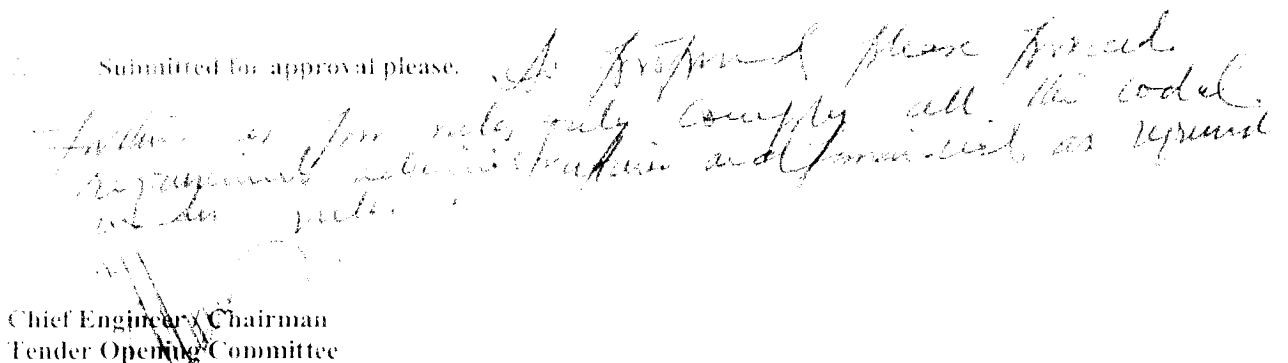 Submitted for approval please. As proposed please proceed
further as per rules, only comply all the codal
requirement administrative and financial, as required
under rules.
Chief Engineer / Chairman
Tender Opening Committee